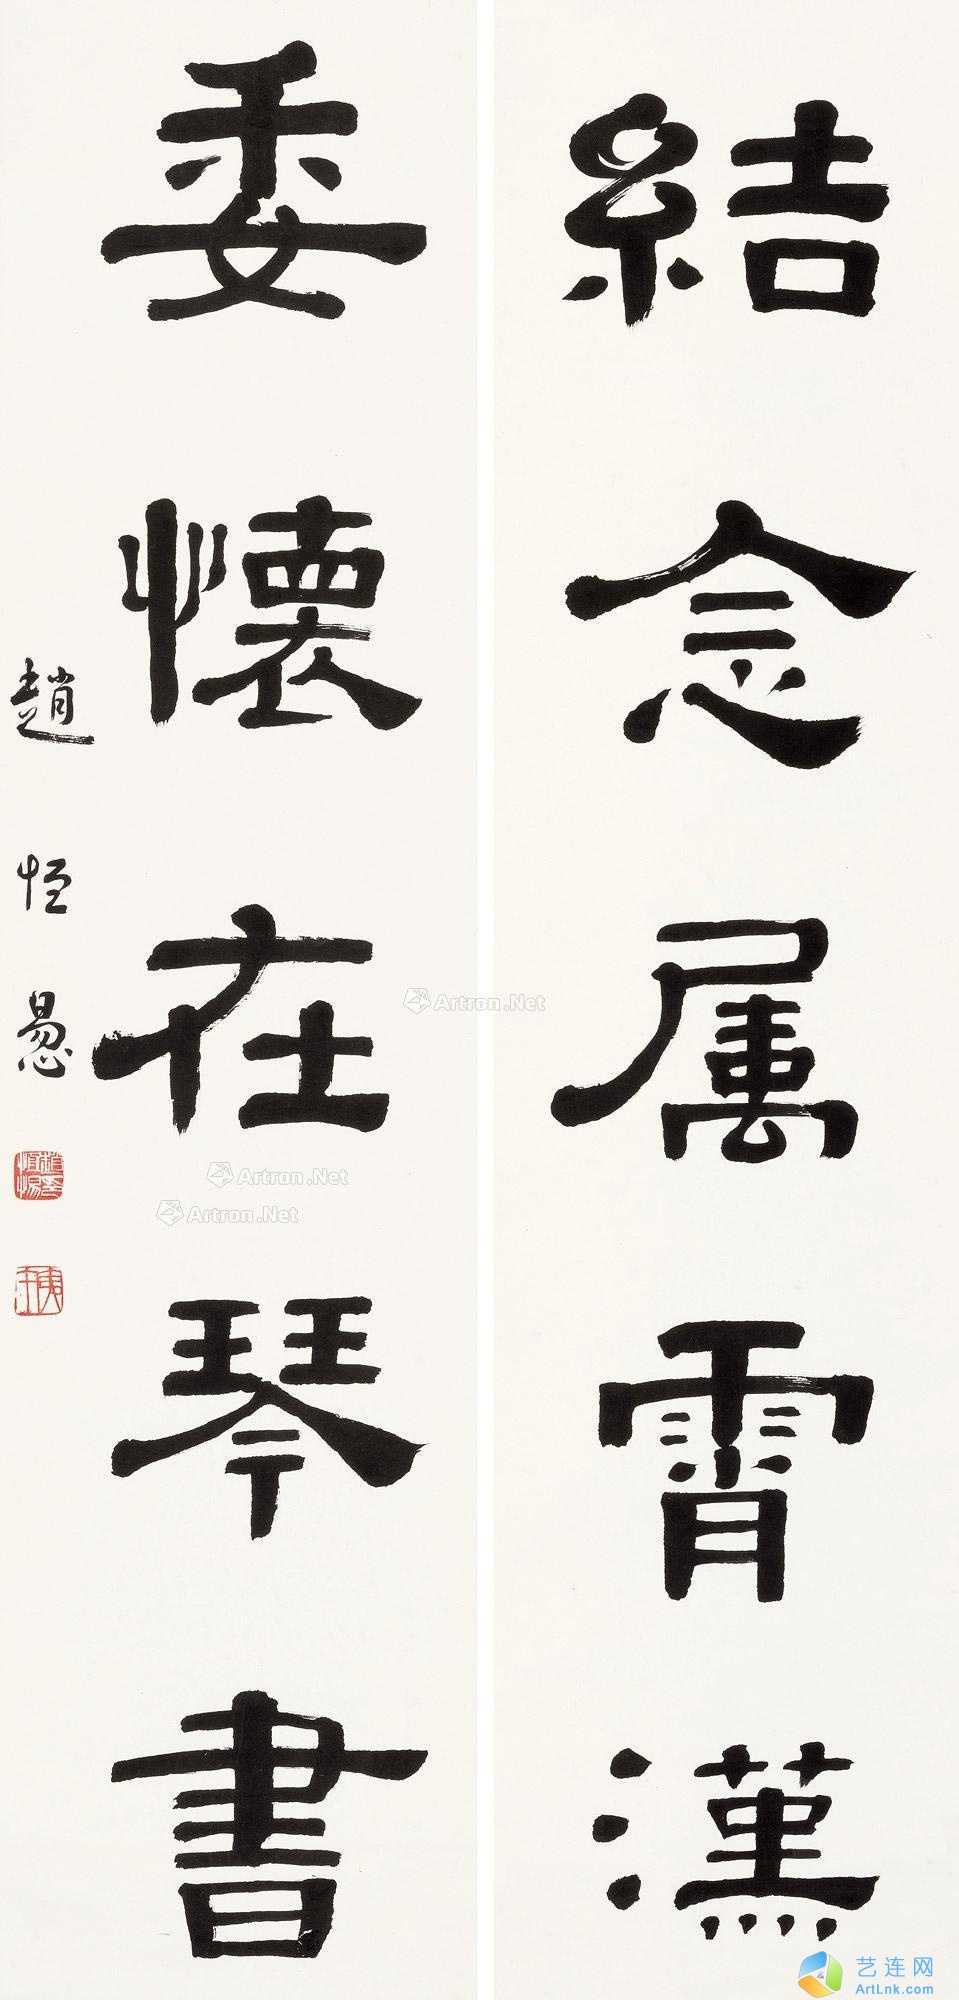 結念属霄漢
委懷在琴書
趙恒惖
Artron.Net
Artron.Net
Artron.Net
艺连网
ArtLnk.com